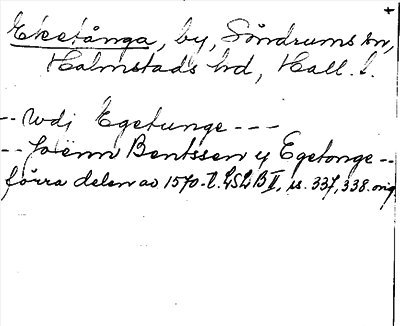 Eketånga, by, Söndrums sn,
Halmstads hd, Hall. l.
-- wdj Egetunge ---
-- Joenn Bentssen y Egetonge --
förra delen av 1570-t. LSLB II, s. 337, 338. orig.